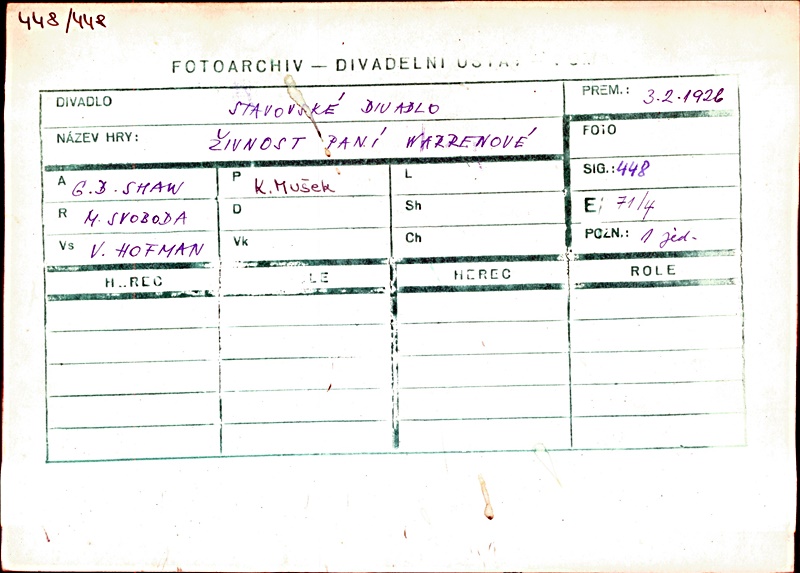 448/448
FOTOARCHIV — DIVADELNÍ
DIVADLO STAVOVSKÉ DIVADLO PREM.: 3.2.1926
NÁZEV HRY: ŽIVNOST PANÍ WARRENOVÉ FOTO
A G.B. SHAW P K. Mušek L SIG.: 448
R M. SVOBODA D Sh E: 71/4
Vs V. HOFMAN Vk Ch POZN.: 1 jed.
H..REC LE HEREC ROLE